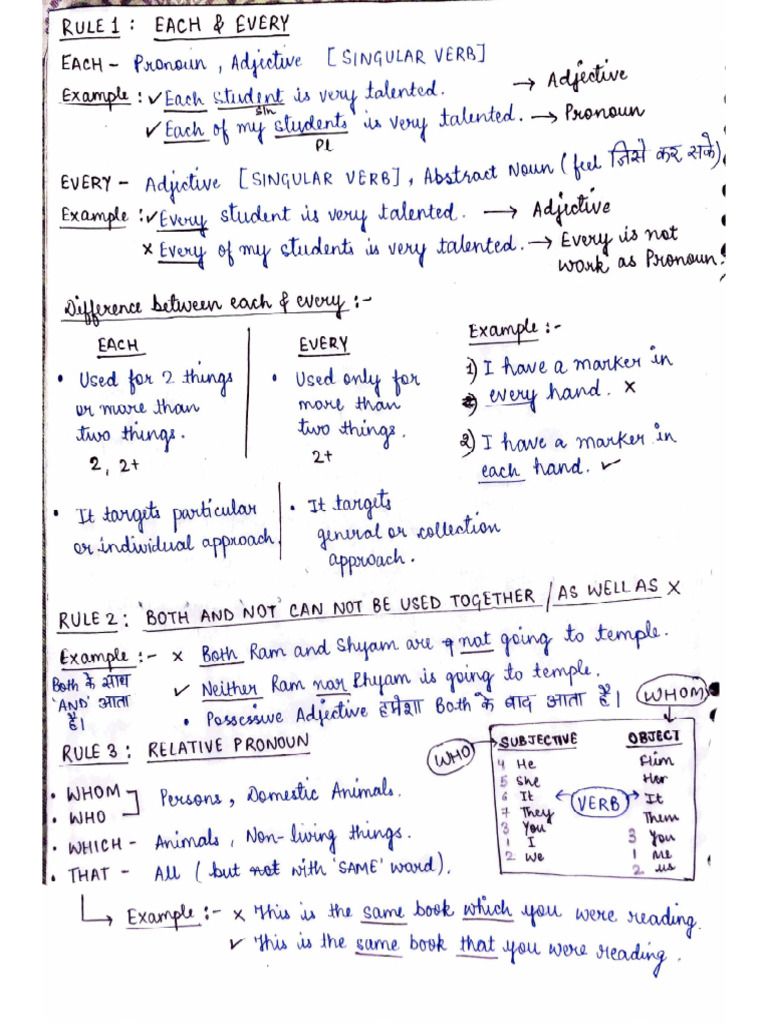 RULE 1 : EACH & EVERY
EACH - Pronoun , Adjective [SINGULAR VERB]
Example : ✓ Each student is very talented. → Adjective
sin
✓ Each of my students is very talented. → Pronoun
Pl
EVERY - Adjective [SINGULAR VERB] , Abstract Noun (feel जिसे कर सके)
Example : ✓ Every student is very talented. → Adjective
× Every of my students is very talented. → Every is not
work as Pronoun.
Difference between each & every :-
EACH
• Used for 2 things
or more than
two things.
2, 2+
EVERY
• Used only for
more than
two things.
2+
Example :-
1) I have a marker in
every hand. ×
2) I have a marker in
each hand. ✓
• It targets particular
or individual approach.
• It targets
general or collection
approach.
RULE 2 : 'BOTH' AND 'NOT' CAN NOT BE USED TOGETHER / AS WELL AS ×
Example :- × Both Ram and Shyam are not going to temple.
Both के साथ
'AND' आता
है।
✓ Neither Ram nar Shyam is going to temple.
• Possessive Adjective हमेशा Both के बाद आता है।
RULE 3 : RELATIVE PRONOUN
• WHOM
• WHO
Persons, Domestic Animals.
• WHICH - Animals, Non-living things.
• THAT - All (but not with 'SAME' word).
WHO → SUBJECTIVE
4 He
5 She
6 It
7 They
3 You
1 I
2 We
← VERB →
WHOM
OBJECT
Him
Her
It
Them
3 You
1 Me
2 us
Example :- × This is the same book which you were reading.
✓ This is the same book that you were reading.